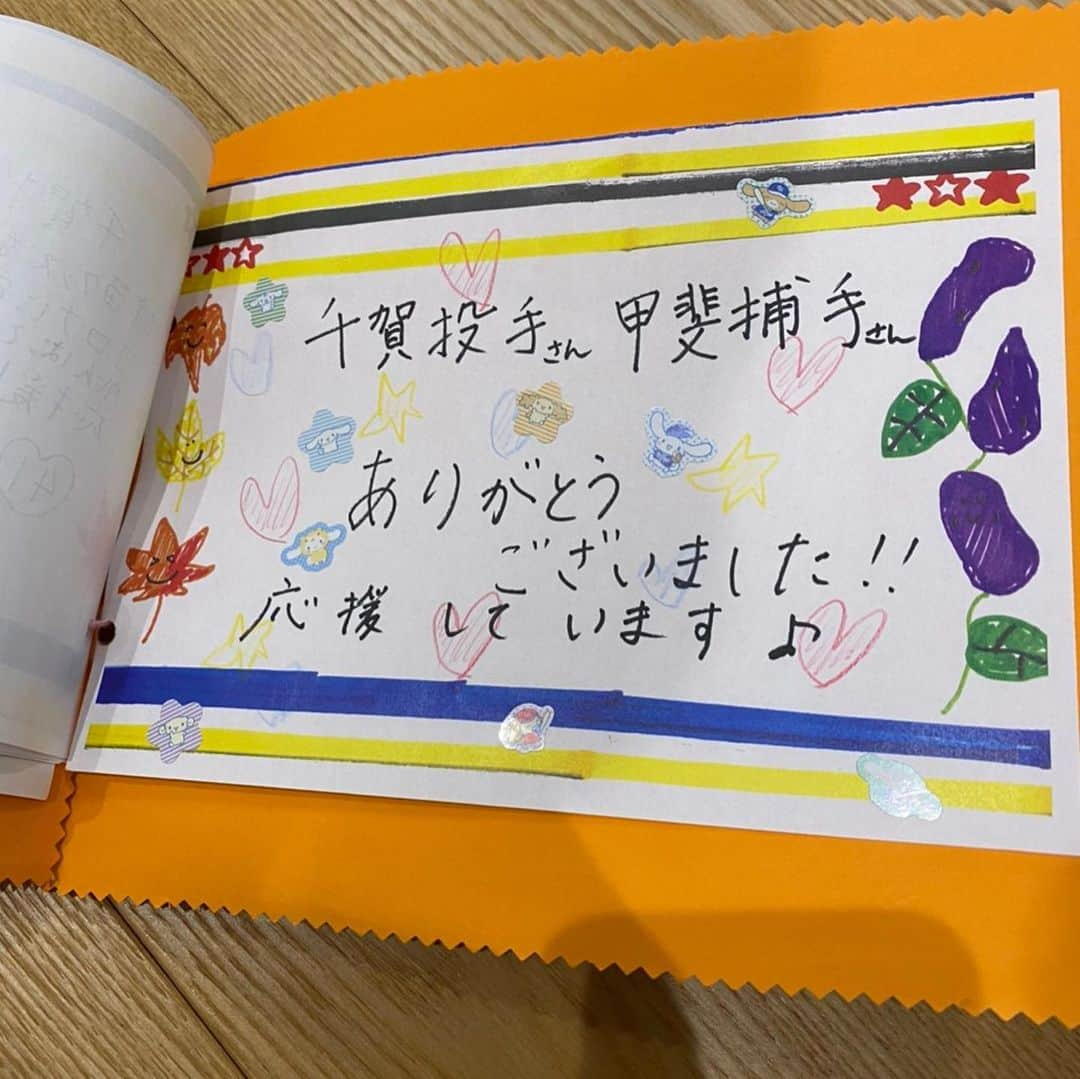 千賀投手さん 甲斐捕手さん
ありがとう
ございました!!
応援しています♪